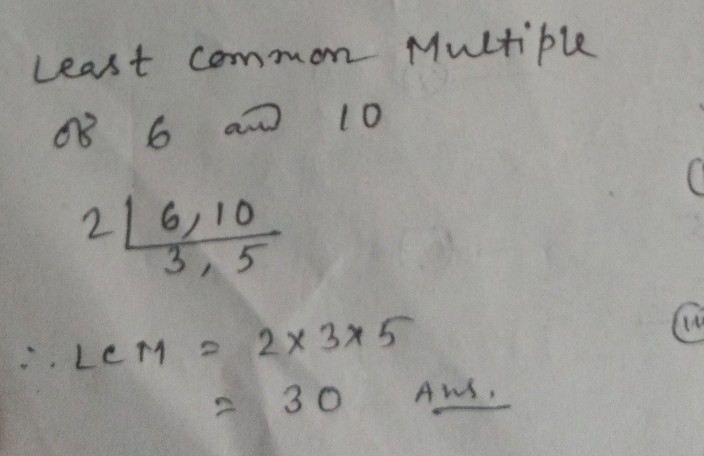 Least Common Multiple
of 6 and 10
2 | 6, 10
3, 5
∴ LCM = 2 × 3 × 5
= 30 Ans.